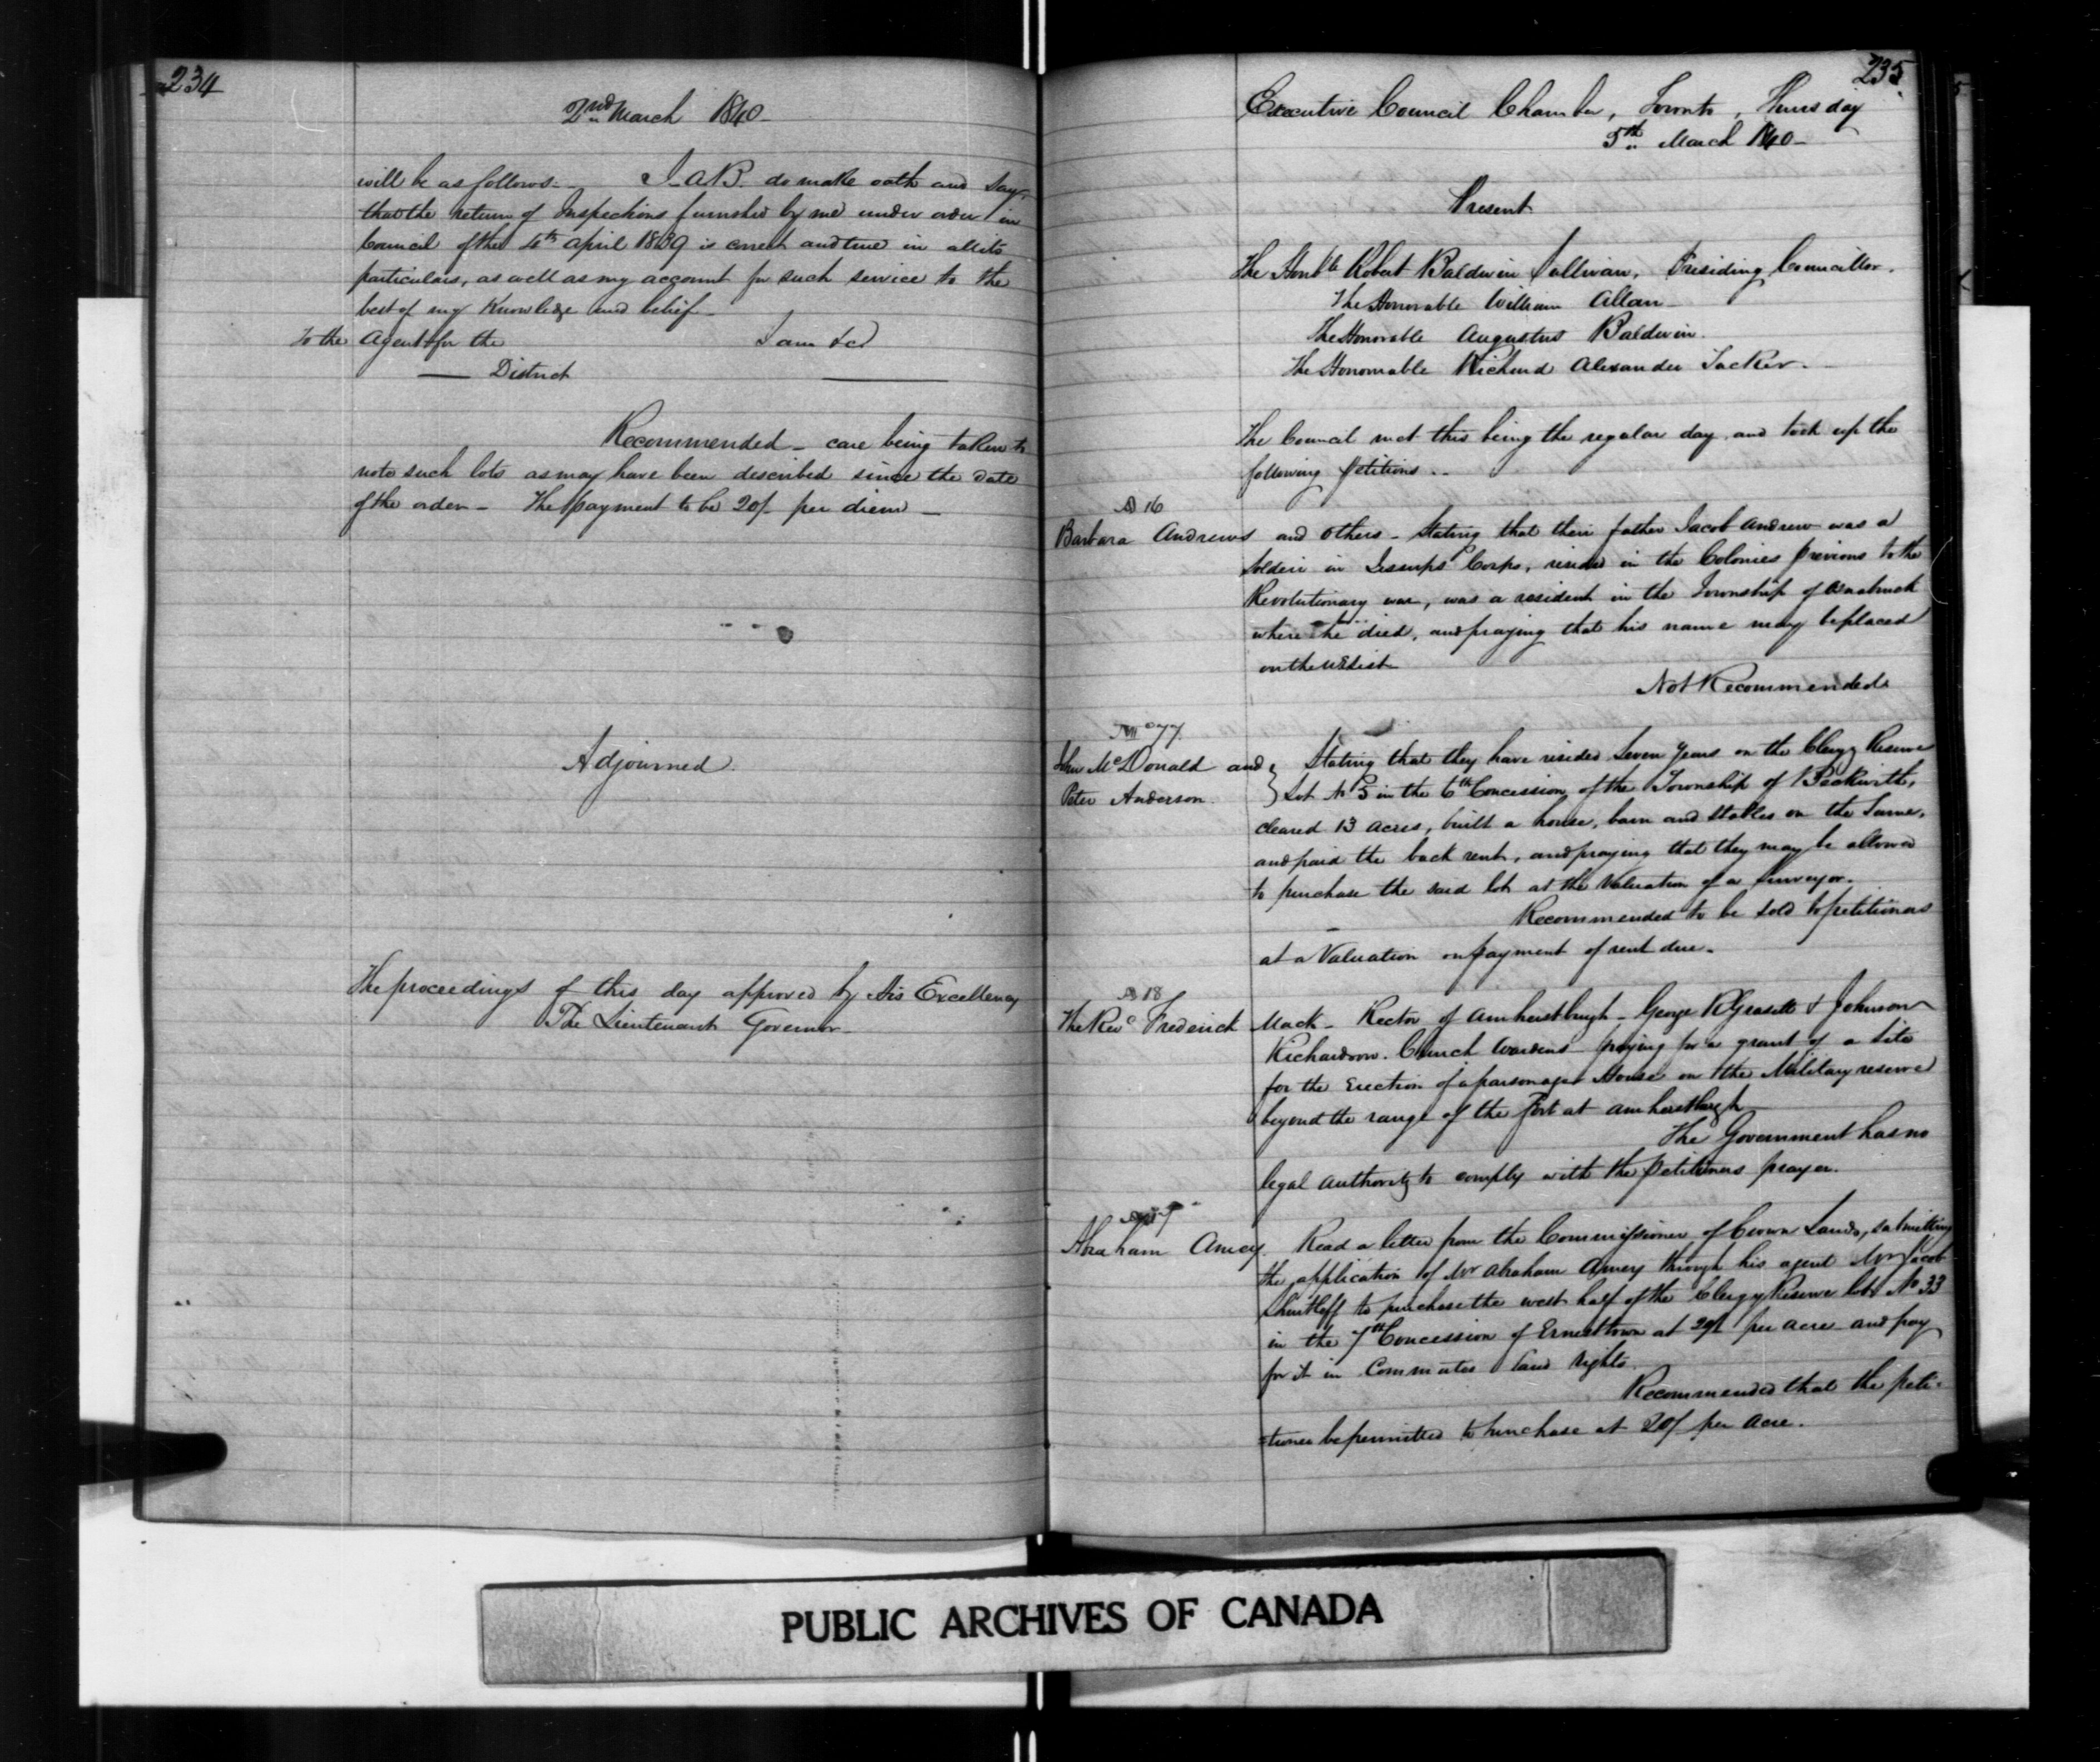 234
2nd March 1840
will be as follows.- I. A B. do make oath and say,
that the return of Inspections furnished by me under order in
Council of the 4th April 1839 is correct and true in all its
particulars, as well as my account for such service to the
best of my Knowledge and belief-
To the Agent for the I am &c
District
Recommended - care being taken to
note such lots as may have been described since the date
of the order - The payment to be 20/- per diem -
Adjourned.
The proceedings of this day approved by His Excellency
The Lieutenant Governor-
235
Executive Council Chamber, Toronto, Thursday
5th March 1840-
Present
The Honble Robert Baldwin Sullivan, Presiding Councillor.
The Honorable William Allan
The Honorable Augustus Baldwin.
The Honourable Richard Alexander Tucker.
The Council met this being the regular day and took up the
following petitions.-
A 16
Barbara Andrews and others - Stating that their father Jacob Andrew was a
Soldier in Jessups Corps, resided in the Colonies previous to the
Revolutionary war, was a resident in the Township of Osnabruck
where he died, and praying that his name may be placed
on the UE List
Not Recommended
Mc 77
John McDonald and } Stating that they have resided Seven Years on the Clergy Reserve
Peter Anderson. } Lot No 3 in the 6th Concession of the Township of Beckwith,
cleared 13 acres, built a house, barn and Stables on the Same,
and paid the back rent, and praying that they may be allowed
to purchase the said lot at the Valuation of a Surveyor.
Recommended to be sold to petitioners
at a Valuation on payment of rent due.
A 18
The Revd Frederick Mack - Rector of Amherstburgh - George R Grasett & Johnson
Richardson. Church Wardens - praying for a grant of a Site
for the Erection of a parsonage House on the Military reserve
beyond the range of the Fort at Amherstburgh
The Government has no
legal authority to comply with the petitioners prayer.
A 17
Abraham Amey. Read a letter from the Commissioner of Crown Lands, submitting
the application of Mr Abraham Amey through his agent Mr Jacob
Shurtleff to purchase the west half of the Clergy Reserve lot No 33
in the 7th Concession of Ernesttown at 20/ per acre and pay
for it in Commuted land rights.
Recommended that the peti-
=tioner be permitted to purchase at 20/ per acre.
PUBLIC ARCHIVES OF CANADA